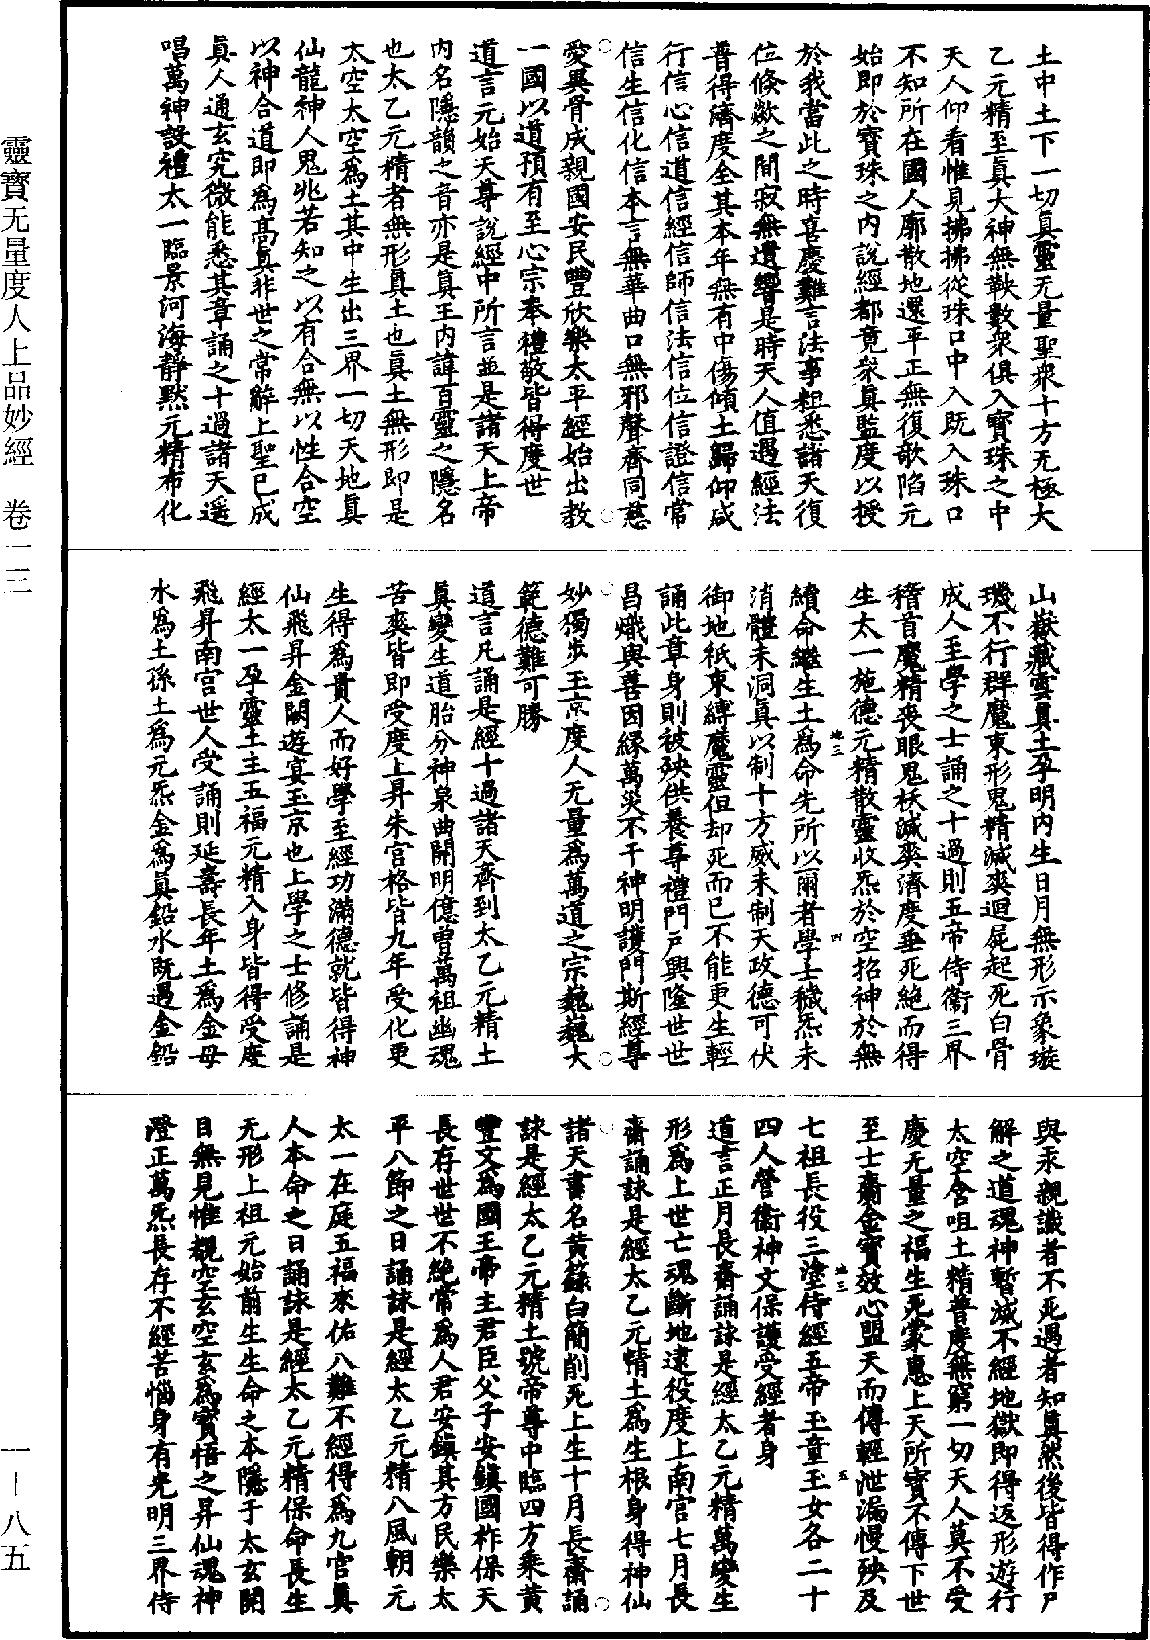 土中土下一切真靈无量聖衆十方无極大
乙元精至真大神無鞅數衆俱入寶珠之中
天人仰看惟見拂拂從珠口中入既入珠口
不知所在國人廓散地還平正無復欹陷元
始即於寶珠之內說經都竟衆真監度以授
於我當此之時喜慶難言法事粗悉諸天復
位倏歘之間寂無遺響是時天人值遇經法
普得濟度全其本年無有中傷傾土歸仰咸
行信心信道信經信師信法信位信證信常
信生信化信本言無華曲口無邪聲齊同慈
愛異骨成親國安民豐欣樂太平經始出教
一國以道預有至心宗奉禮敬皆得度世
道言元始天尊說經中所言並是諸天上帝
內名隱韻之音亦是真王內諱百靈之隱名
也太乙元精者無形真土也真土無形即是
太空太空為土其中生出三界一切天地真
仙龍神人鬼兆若知之以有合無以性合空
以神合道即為高真非世之常解上聖已成
真人通玄究微能悉其章誦之十過諸天遥
唱萬神設禮太一臨景河海静默元精布化
山嶽藏雲真土孕明內生日月無形示象璇
璣不行群魔束形鬼精滅爽迴屍起死白骨
成人至學之士誦之十過則五帝侍衛三界
稽首魔精喪眼鬼妖滅爽濟度垂死絕而得
生太一施德元精散靈收炁於空招神於無
續命繼生土為命先所以爾者學士穢炁未
消體未洞真以制十方威未制天政德可伏
御地祇束縛魔靈但却死而已不能更生輕
誦此章身則被殃供養尊禮門戶興隆世世
昌熾與善因緣萬災不干神明護門斯經尊
妙獨步玉京度人无量為萬道之宗巍巍大
範德難可勝
道言凡誦是經十過諸天齊到太乙元精土
真變生道胎分神泉曲開明億曾萬祖幽魂
苦爽皆即受度上昇朱宮格皆九年受化更
生得為貴人而好學至經功滿德就皆得神
仙飛昇金闕遊宴玉京也上學之士修誦是
經太一孕靈土主五福元精入身皆得受度
飛昇南宮世人受誦則延壽長年土為金母
水為土孫土為元炁金為真鉛水既遇金鉛
與汞親識者不死遇者知真然後皆得作尸
解之道魂神暫滅不經地獄即得返形遊行
太空含咀土精普度無窮一切天人莫不受
慶无量之福生死蒙惠上天所寶不傳下世
至士齎金寶效心盟天而傳輕泄漏慢殃及
七祖長役三塗侍經五帝玉童玉女各二十
四人營衛神文保護受經者身
道言正月長齋誦詠是經太乙元精萬變生
形為上世亡魂斷地逮役度上南宮七月長
齋誦詠是經太乙元精土為生根身得神仙
諸天書名黃籙白簡削死上生十月長齋誦
詠是經太乙元精土號帝尊中臨四方乘黃
豐文為國王帝主君臣父子安鎮國祚保天
長存世世不絕常為人君安鎮其方民樂太
平八節之日誦詠是經太乙元精八風朝元
太一在庭五福來佑八難不經得為九宮真
人本命之日誦詠是經太乙元精保命長生
无形上祖元始前生生命之本隱于太玄開
目無見惟觀空玄空玄為寶悟之昇仙魂神
澄正萬炁長存不經苦惱身有光明三界侍
地三
四
地三
五
靈寶无量度人上品妙經　卷一三
一－八五